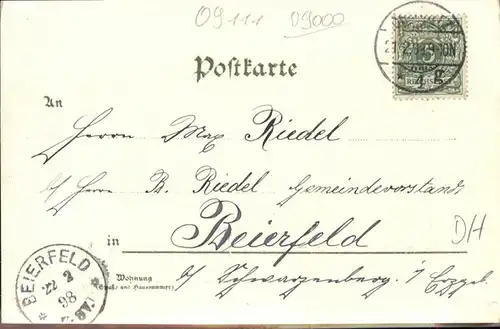 09111 09000
Postkarte
5
An
Herrn Max Riedel
p/ Herrn B. Riedel Gemeindevorstand
in Beierfeld
DH
Wohnung
(Straße und Hausnummer)
b/ Schwarzenberg i/
BEIERFELD
22 2
98